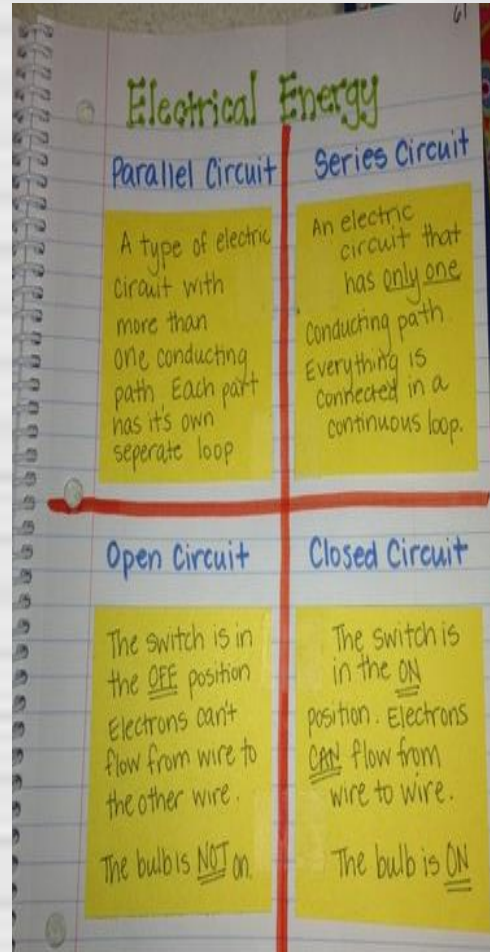 61
Electrical Energy
Parallel Circuit
A type of electric
circuit with
more than
one conducting
path Each part
has it's own
seperate loop
Series Circuit
An electric
circuit that
has only one
conducting path.
Everything is
connected in a
continuous loop.
Open Circuit
The switch is in
the OFF position
Electrons can't
flow from wire to
the other wire.
The bulb is NOT on.
Closed Circuit
The switch is
in the ON
position. Electrons
CAN flow from
wire to wire.
The bulb is ON